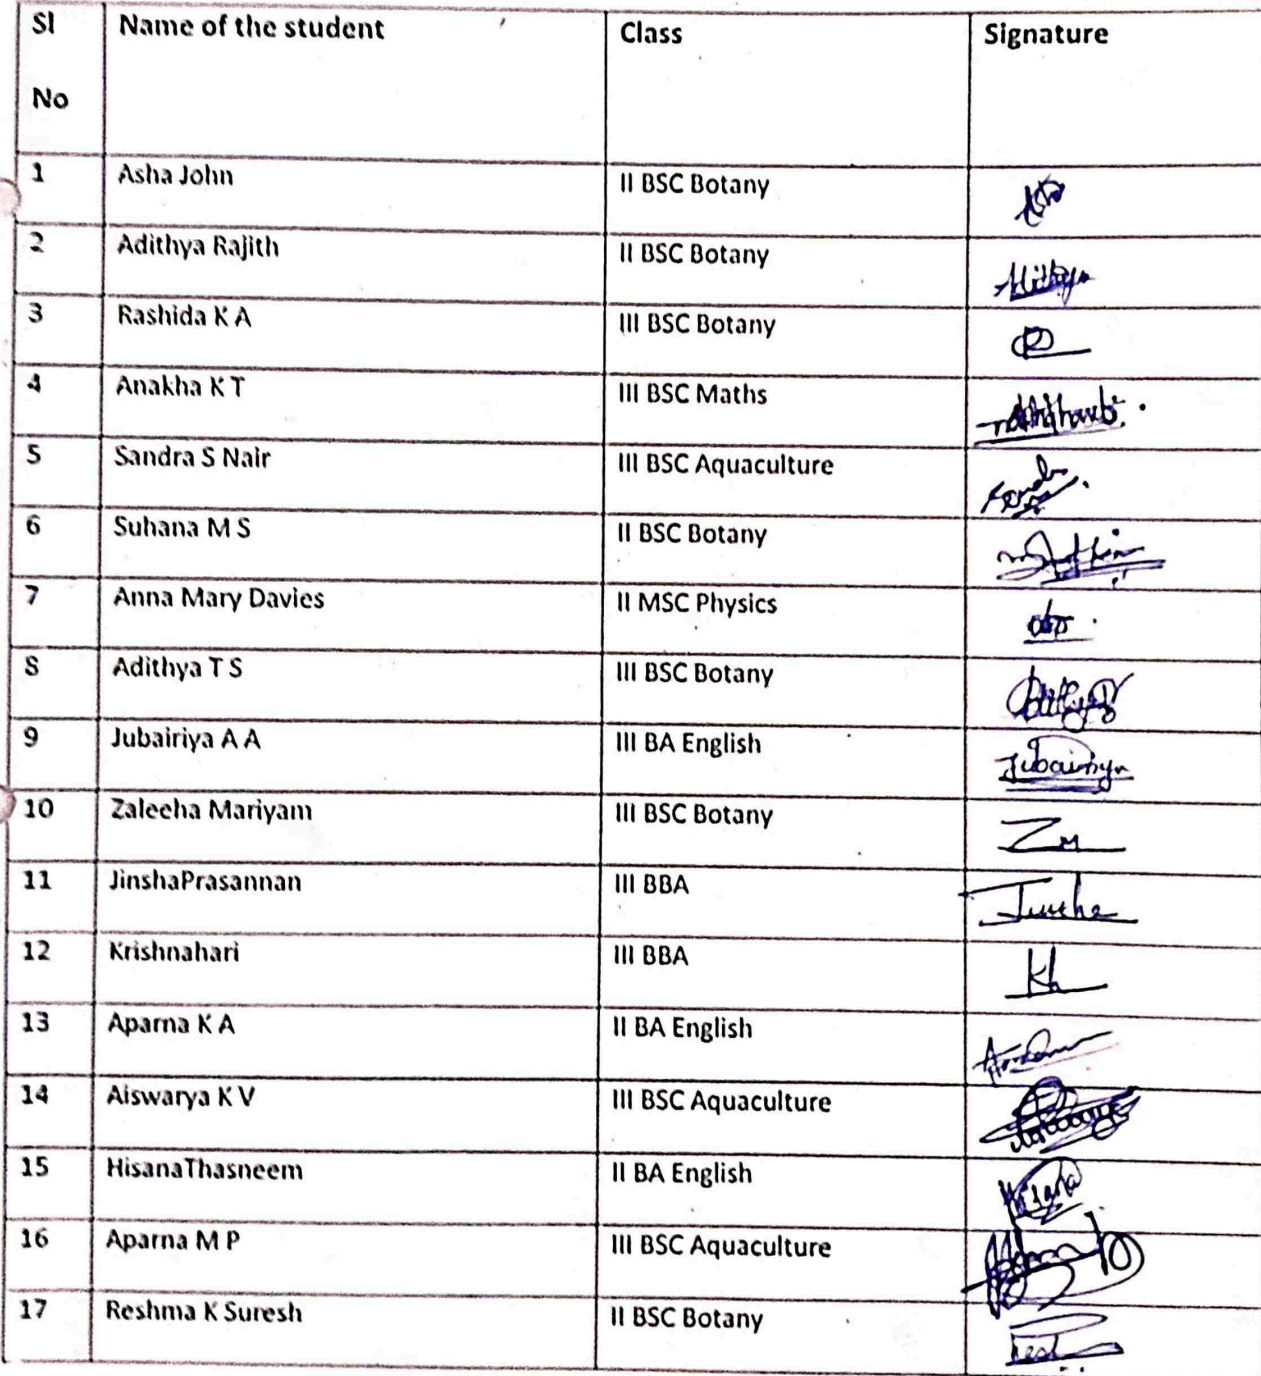 Sl No Name of the student Class Signature
1 Asha John II BSC Botany
2 Adithya Rajith II BSC Botany Adithya
3 Rashida K A III BSC Botany
4 Anakha K T III BSC Maths
5 Sandra S Nair III BSC Aquaculture
6 Suhana M S II BSC Botany
7 Anna Mary Davies II MSC Physics
8 Adithya T S III BSC Botany
9 Jubairiya A A III BA English Jubairiya
10 Zaleeha Mariyam III BSC Botany
11 JinshaPrasannan III BBA
12 Krishnahari III BBA Kh
13 Aparna K A II BA English
14 Aiswarya K V III BSC Aquaculture
15 HisanaThasneem II BA English Hisana
16 Aparna M P III BSC Aquaculture
17 Reshma K Suresh II BSC Botany